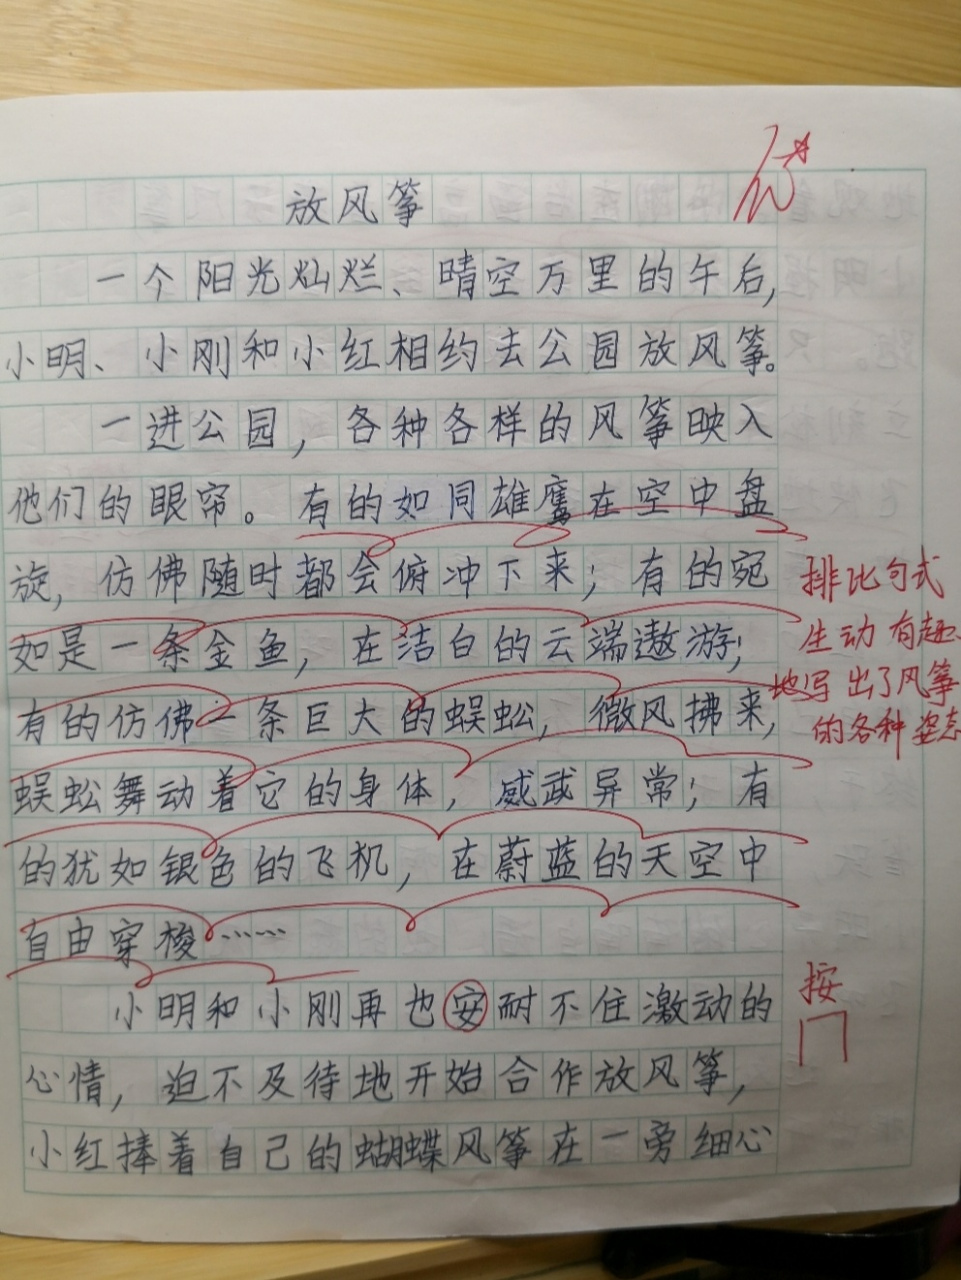 放风筝
一个阳光灿烂、晴空万里的午后,
小明、小刚和小红相约去公园放风筝。
一进公园,各种各样的风筝映入
他们的眼帘。有的如同雄鹰在空中盘
旋,仿佛随时都会俯冲下来;有的宛
如是一条金鱼,在洁白的云端遨游;
有的仿佛一条巨大的蜈蚣,微风拂来,
蜈蚣舞动着它的身体,威武异常;有
的犹如银色的飞机,在蔚蓝的天空中
自由穿梭……
小明和小刚再也安耐不住激动的
心情,迫不及待地开始合作放风筝,
小红捧着自己的蝴蝶风筝在一旁细心
排比句式
生动有趣
地写出了风筝
的各种姿态
按